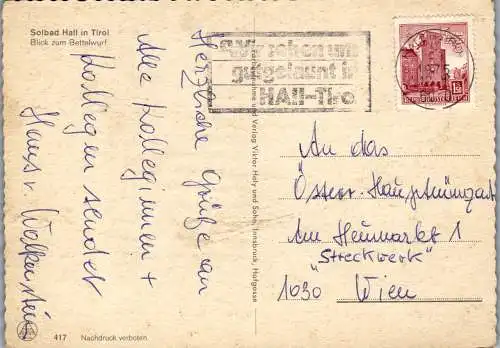 Solbad Hall in Tirol
Blick zum Bettelwurf
Herzliche Grüße an
Alle Kolleginnen +
Kollegen sendet
Hans v. Wolkenstein
Wir sehen uns
gutgelaunt in
HAll-Tirol
Aufnahme und Verlag Viktor Hely und Sohn, Innsbruck, Hofgasse
An das
Österr. Hauptmünzamt
Am Heumarkt 1
"Streckwerk"
1030 Wien
417 Nachdruck verboten